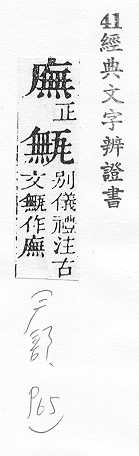 41經典文字辨證書
廡正甒別儀禮注古
文甒作廡
部, P65)